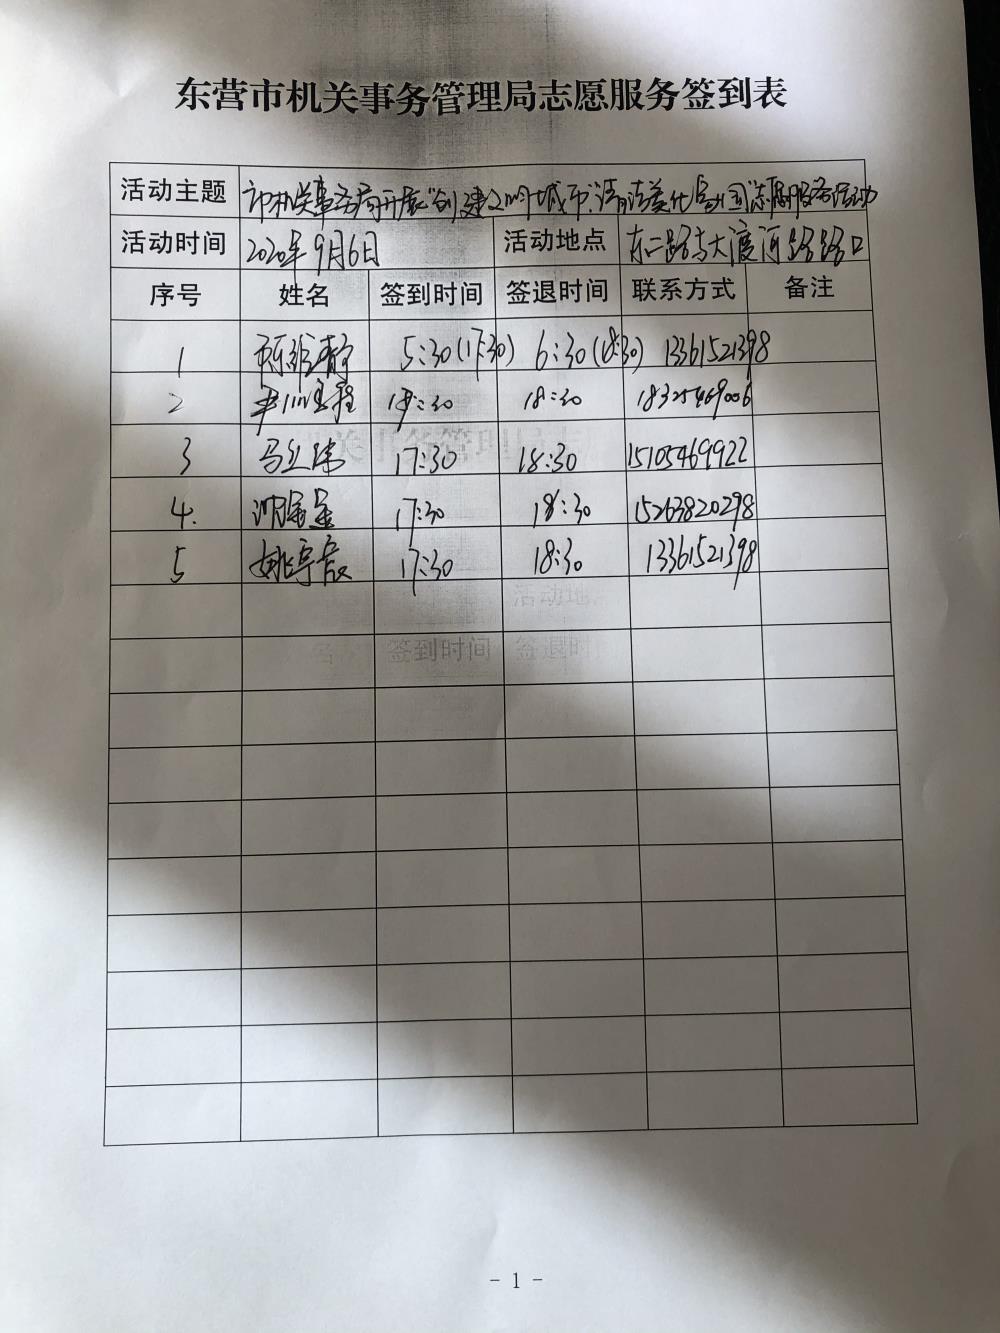 东营市机关事务管理局志愿服务签到表
活动主题 市机关事务局开展"创建文明城市、清洁美化家园"志愿服务活动
活动时间 2020年9月6日 活动地点 东二路与大渡河路路口
序号 姓名 签到时间 签退时间 联系方式 备注
1 5:30(17:30) 6:30(18:30) 13361521398
2 18:30 18325469006
3 马 17:30 18:30 15105469922
4. 17:30 18:30 15263820298
5 姚 17:30 18:30 13361521398
签到时间 签退时
- 1 -